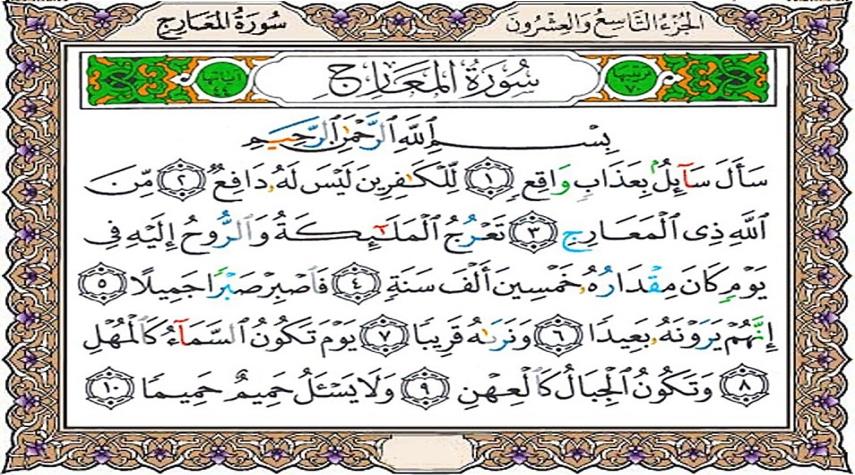 الجُزءُ التَّاسِعُ وَالعِشْرُونَ
سُورَةُ المَعَارِج
ترتيبها ٧٠
سُورَةُ المَعَارِج
آياتها ٤٤
بِسْمِ ٱللَّهِ ٱلرَّحْمَٰنِ ٱلرَّحِيمِ
سَأَلَ سَآئِلُۢ بِعَذَابٍ وَاقِعٍ ۝١ لِّلْكَٰفِرِينَ لَيْسَ لَهُۥ دَافِعٌ ۝٢ مِّنَ
ٱللَّهِ ذِى ٱلْمَعَارِجِ ۝٣ تَعْرُجُ ٱلْمَلَٰٓئِكَةُ وَٱلرُّوحُ إِلَيْهِ فِى
يَوْمٍ كَانَ مِقْدَارُهُۥ خَمْسِينَ أَلْفَ سَنَةٍ ۝٤ فَٱصْبِرْ صَبْرًا جَمِيلًا ۝٥
إِنَّهُمْ يَرَوْنَهُۥ بَعِيدًا ۝٦ وَنَرَىٰهُ قَرِيبًا ۝٧ يَوْمَ تَكُونُ ٱلسَّمَآءُ كَٱلْمُهْلِ
۝٨ وَتَكُونُ ٱلْجِبَالُ كَٱلْعِهْنِ ۝٩ وَلَا يَسْـَٔلُ حَمِيمٌ حَمِيمًا ۝١٠